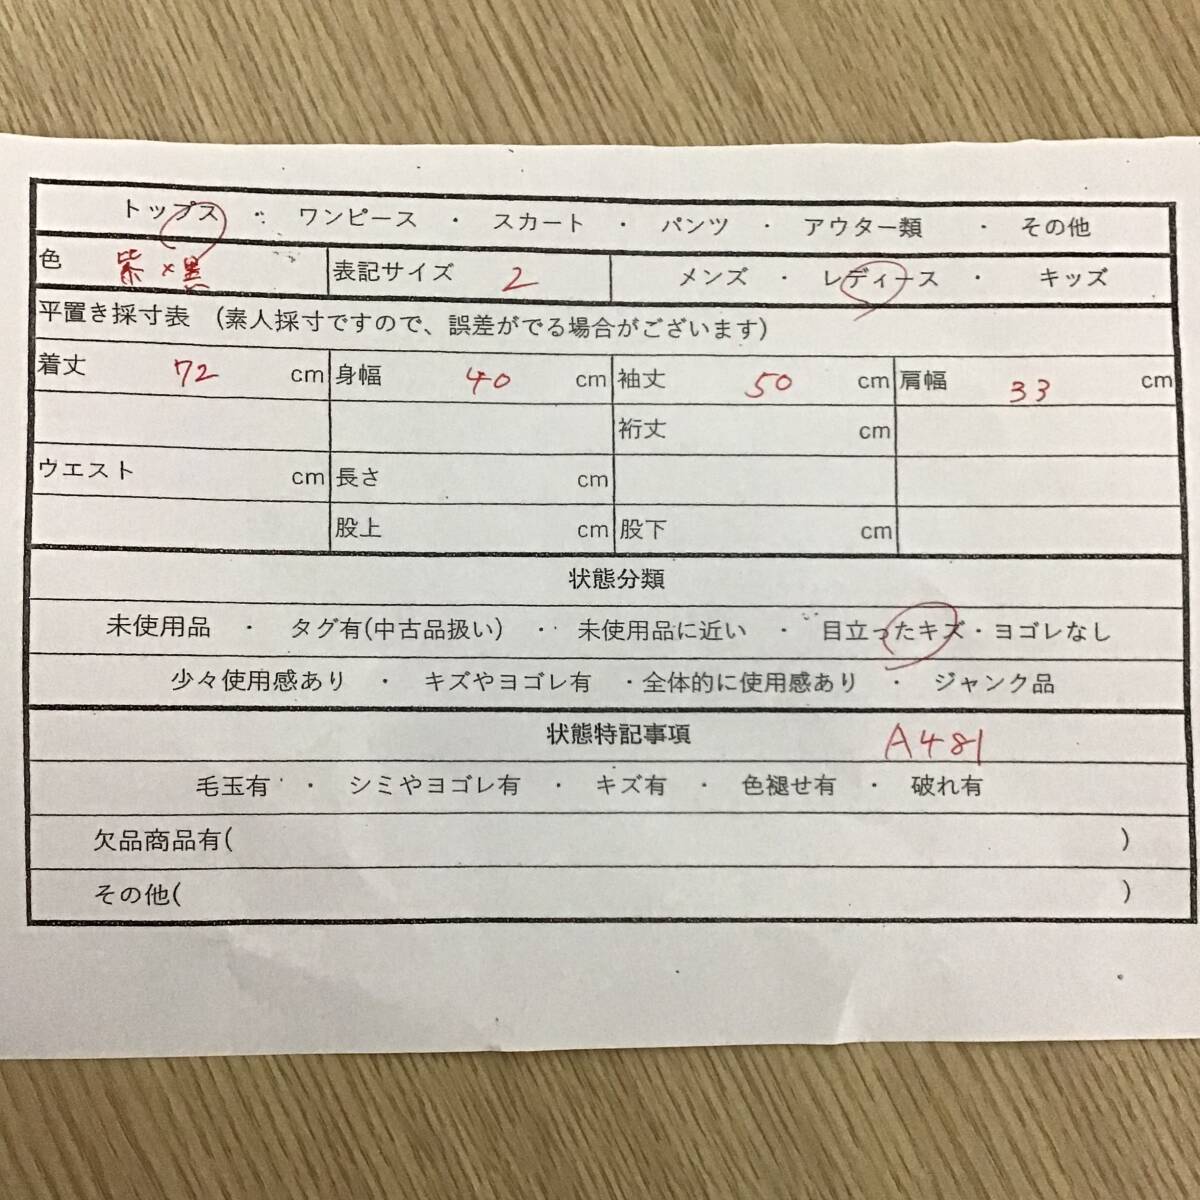 トップス ・ ワンピース ・ スカート ・ パンツ ・ アウター類 ・ その他
色 紫×黒 表記サイズ 2 メンズ ・ レディース ・ キッズ
平置き採寸表 (素人採寸ですので、誤差がでる場合がございます)
着丈 72 cm 身幅 40 cm 袖丈 50 cm 肩幅 33 cm
裄丈 cm
ウエスト cm 長さ cm
股上 cm 股下 cm
状態分類
未使用品 ・ タグ有(中古品扱い) ・ 未使用品に近い ・ 目立ったキズ・ヨゴレなし
少々使用感あり ・ キズやヨゴレ有 ・全体的に使用感あり ・ ジャンク品
状態特記事項 A481
毛玉有 ・ シミやヨゴレ有 ・ キズ有 ・ 色褪せ有 ・ 破れ有
欠品商品有( )
その他( )